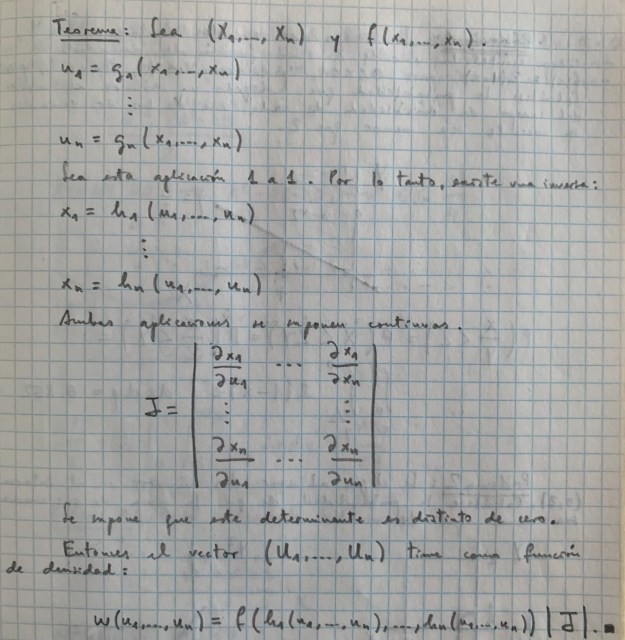 Teorema: Sea (X₁,...,Xₙ) y f(x₁,...,xₙ).
u₁ = g₁(x₁,...,xₙ)
⋮
uₙ = gₙ(x₁,...,xₙ)
Sea esta aplicación 1 a 1. Por lo tanto, existe una inversa:
x₁ = h₁(u₁,...,uₙ)
⋮
xₙ = hₙ(u₁,...,uₙ)
Ambas aplicaciones se imponen continuas.
J = | ∂x₁/∂u₁ ... ∂x₁/∂xₙ |
⋮ ⋮
| ∂xₙ/∂u₁ ... ∂xₙ/∂uₙ |
Se impone que este determinante es distinto de cero.
Entonces el vector (U₁,...,Uₙ) tiene como función
de densidad:
w(u₁,...,uₙ) = f(h₁(u₁,...,uₙ),...,hₙ(u₁,...,uₙ)) |J|. ■